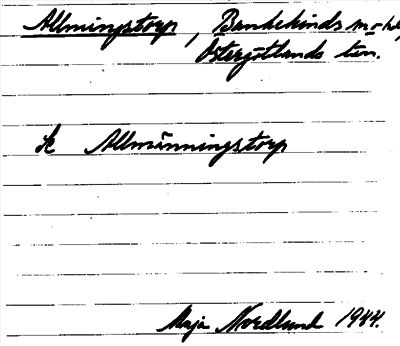 Allmingstorp, Bankekinds
Östergötlands län.
Se Allmänningstorp
Maja Nordlund 1944.